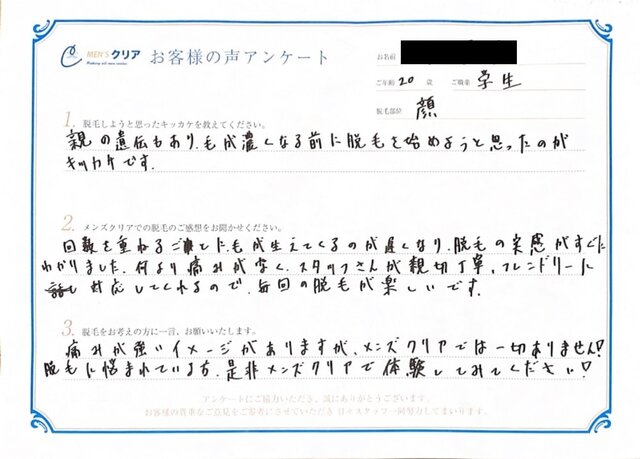 MEN'S クリア
お客様の声アンケート
お名前
ご年齢 20 歳 ご職業 学生
脱毛部位 顔
1. 脱毛しようと思ったキッカケを教えてください。
親の遺伝もあり、毛が濃くなる前に脱毛を始めようと思ったのが
キッカケです。
2. メンズクリアでの脱毛のご感想をお聞かせください。
回数を重ねるごとに毛が生えてくるのが遅くなり、脱毛の実感がすぐに
わかりました。何より痛みが少なく、スタッフさんが親切丁寧、フレンドリーに
対応してくれるので、毎回の脱毛が楽しいです。
3. 脱毛をお考えの方に一言、お願いいたします。
痛みが強いイメージがありますが、メンズクリアでは一切ありません!
脱毛に悩まれている方、是非メンズクリアで体験してみてください!
アンケートにご協力いただき、誠にありがとうございます。
お客様の貴重なご意見をご参考にさせていただき 日々スタッフ一同努力してまいります。